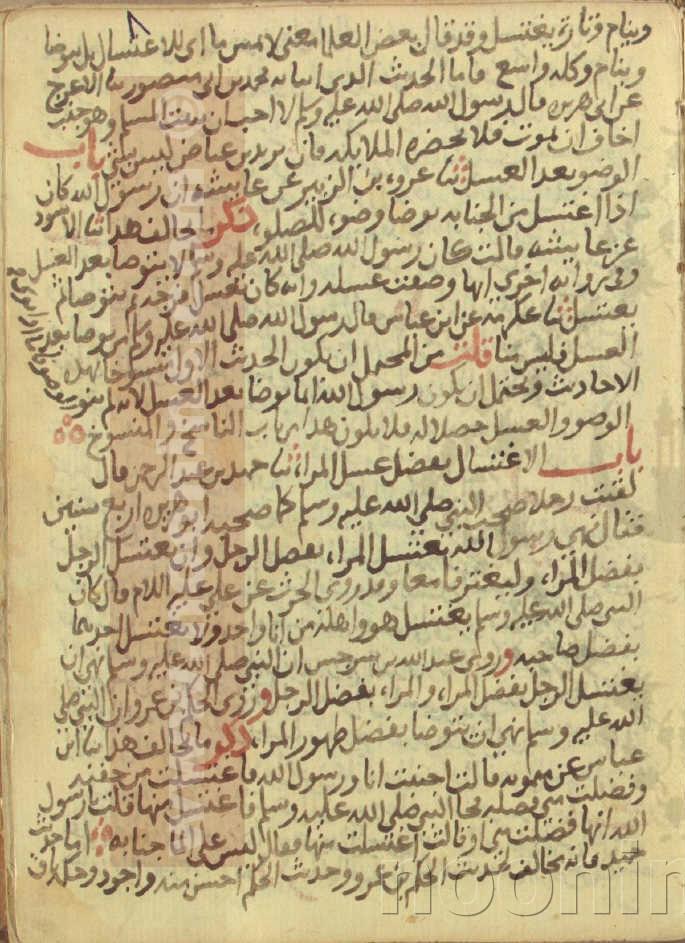 وينام وتارة يغتسل وقد قال بعض العلما معنى لا يمس ما اى للاغتسال بل يتوضا
وينام وكله واسع فاما الحديث الذى انبا به محمد بن ابى منصور الاعرج
عن ابى هريره قال رسول الله صلى الله عليه وسلم لا احب ان يبيت المسلم وهو جنب
اخاف ان يموت فلا تحضره الملايكه فان يزيد بن عياض ليس بشى باب
الوضو بعد الغسل ثنا عروه بن الزبير عن عايشه ان رسول الله كان
اذا اغتسل من الجنابه توضا وضوه للصلوه ذكر ما يخالف هذا ثنا الاسود
عن عايشه قالت كان رسول الله صلى الله عليه وسلم لا يتوضا بعد الغسل
وفى روايه اخرى انها وصفت غسله وانه كان يغسل فرجه ثم يتوضا ثم
يغتسل ثنا عكرمة عن ابن عباس قال رسول الله صلى الله عليه وسلم من توضا بعد
الغسل فليس منا قلت من المحتمل ان يكون الحديث الاول نسخ بهذه
الاحاديث ويحتمل ان يكون رسول الله انما توضا بعد الغسل لانه لم ينو
الوضو والغسل حصلا له فلا يكون هذا من باب الناسخ والمنسوخ
باب الاغتسال بفضل غسل المراه ثنا حميد بن عبد الرحمن قال
لقيت رجلا صحب النبى صلى الله عليه وسلم كما صحبه ابو هريره اربع سنين
فقال نهى رسول الله يغتسل المراه بفضل الرجل وان يغتسل الرجل
بفضل المراه وليغترفا معا وقد روى الحرث عن على عليه السلام قال كان
النبى صلى الله عليه وسلم يغتسل هو واهله من انا واحد ولا يغتسل احدهما
بفضل صاحبه وروى عبد الله بن سرجس ان النبى صلى الله عليه وسلم نهى ان
يغتسل الرجل بفضل المراه والمراه بفضل الرجل وروى الحكم بن عمرو ان النبى صلى
الله عليه وسلم نهى ان يتوضا بفضل طهور المراه ذكر ما يخالف هذا ثنا ابن
عباس عن ميمونه قالت اجنبت انا ورسول الله فاغتسلت من جفنه
وفضلت منى فضله فجا النبى صلى الله عليه وسلم فاغتسل منها فقلت يرسول
الله انها فضلت منى او قالت اغتسلت منها فقال ليس على الما جنابه اما حديث
حميد فانه يخالف لحديث الحكم بن عمرو وحديث الحكم احسن منه واجود وحكى ان
noonin